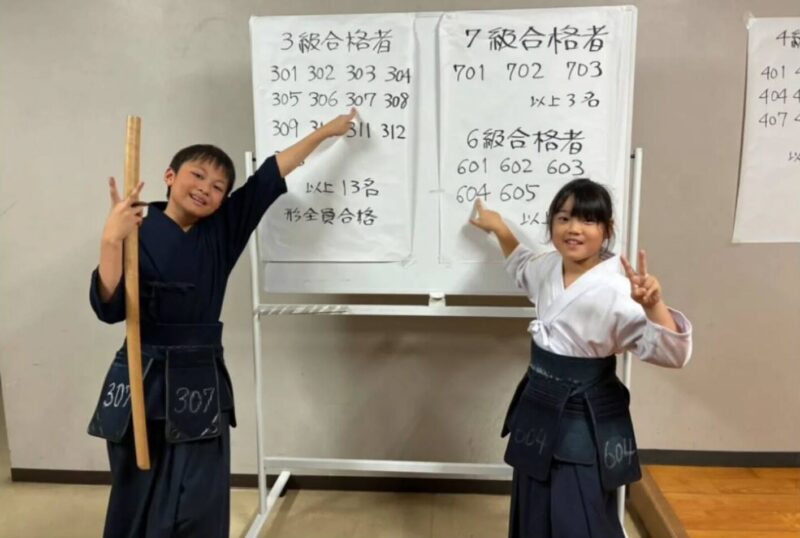 3級合格者
301 302 303 304
305 306 307 308
309 311 312
以上 13名
形全員合格
7級合格者
701 702 703
以上3名
6級合格者
601 602 603
604 605
以上
4級
401
404
407
307
307
604
604